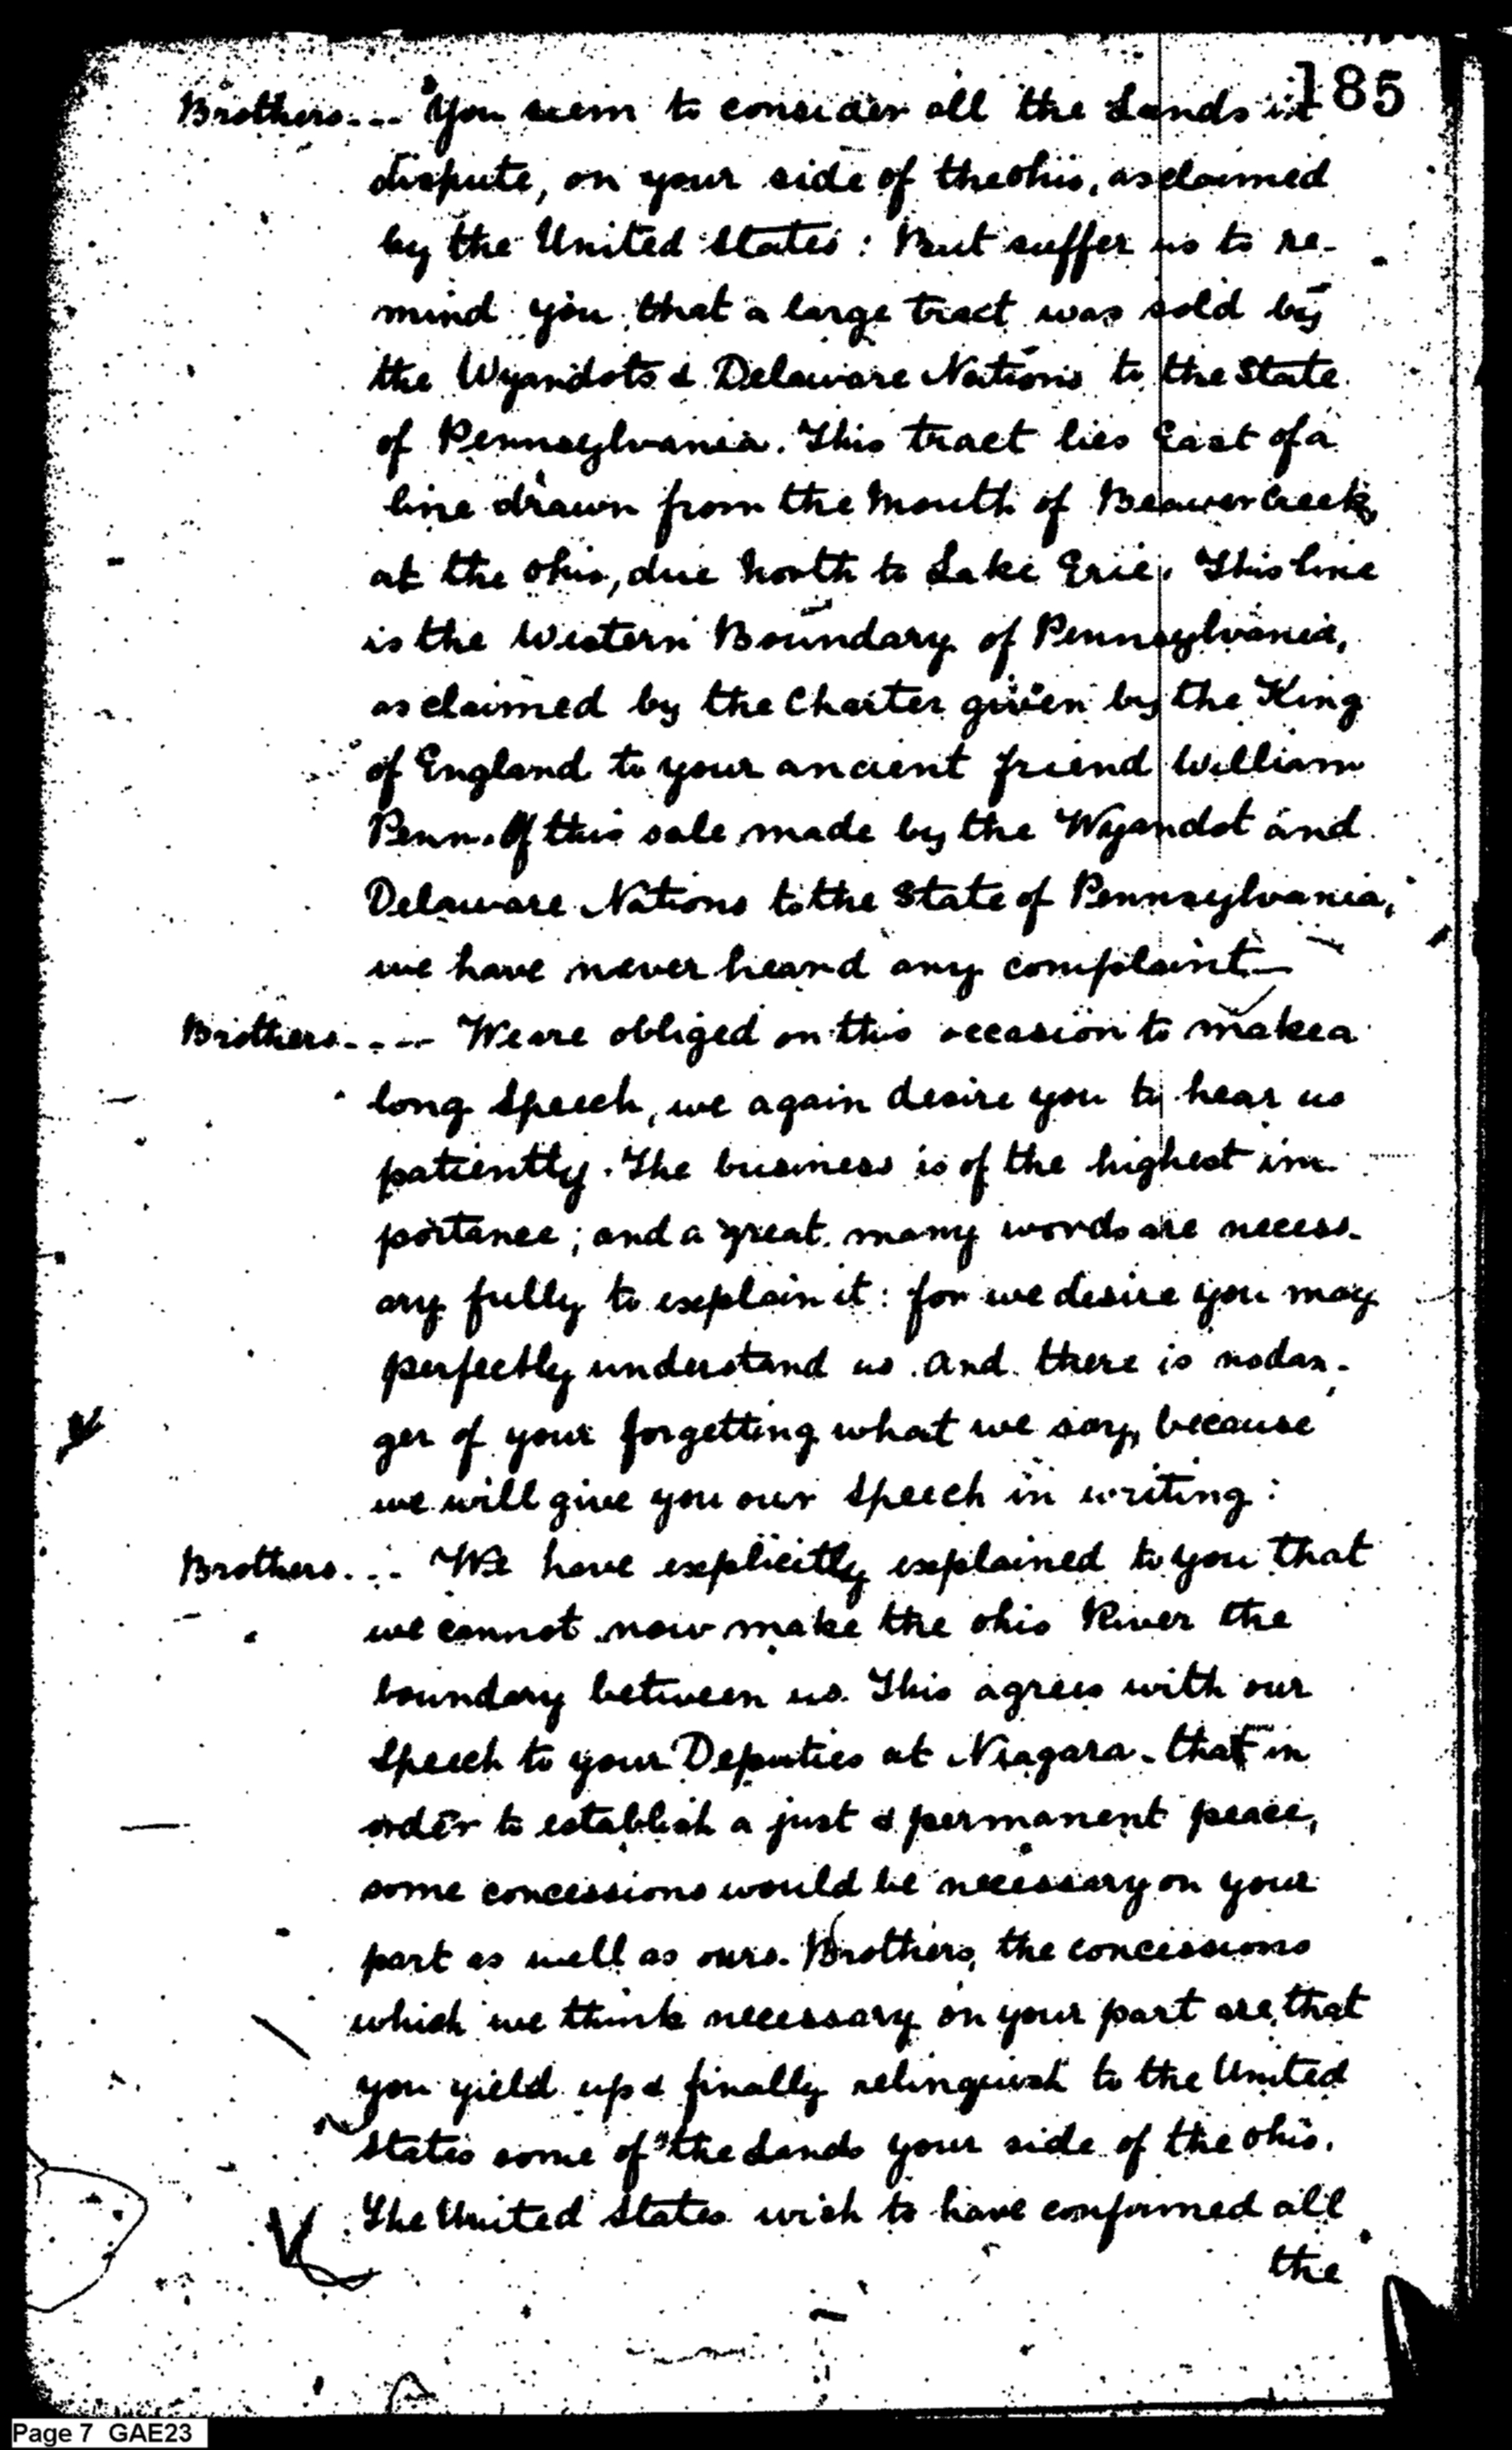 185
Brothers... You seem to consider all the Lands in
dispute, on your side of the Ohio, as claimed
by the United States: But suffer us to re-
mind you, that a large tract was sold by
the Wyandots & Delaware Nations to the State
of Pennsylvania. This tract lies East of a
line drawn from the Mouth of Beaver Creek,
at the Ohio, due North to Lake Erie. This line
is the Western Boundary of Pennsylvania,
as claimed by the Charter given by the King
of England to your ancient friend William
Penn. Of this sale made by the Wyandot and
Delaware Nations to the State of Pennsylvania,
we have never heard any complaint—
Brothers.... We are obliged on this occasion to make a
long Speech, we again desire you to hear us
patiently. The business is of the highest im
portance; and a great many words are necess-
ary fully to explain it: for we desire you may
perfectly understand us. and there is no dan-
ger of your forgetting what we say, because
we will give you our Speech in writing:
Brothers... We have explicitly explained to you that
we cannot now make the Ohio River the
boundary between us. This agrees with our
Speech to your Deputies at Niagara - that in
order to establish a just & permanent peace,
some concessions would be necessary on your
part as well as ours. Brothers, the concessions
which we think necessary on your part are, that
you yield up & finally relinquish to the United
States some of the Lands your side of the Ohio.
The United States wish to have confirmed all
the
Page 7 GAE23